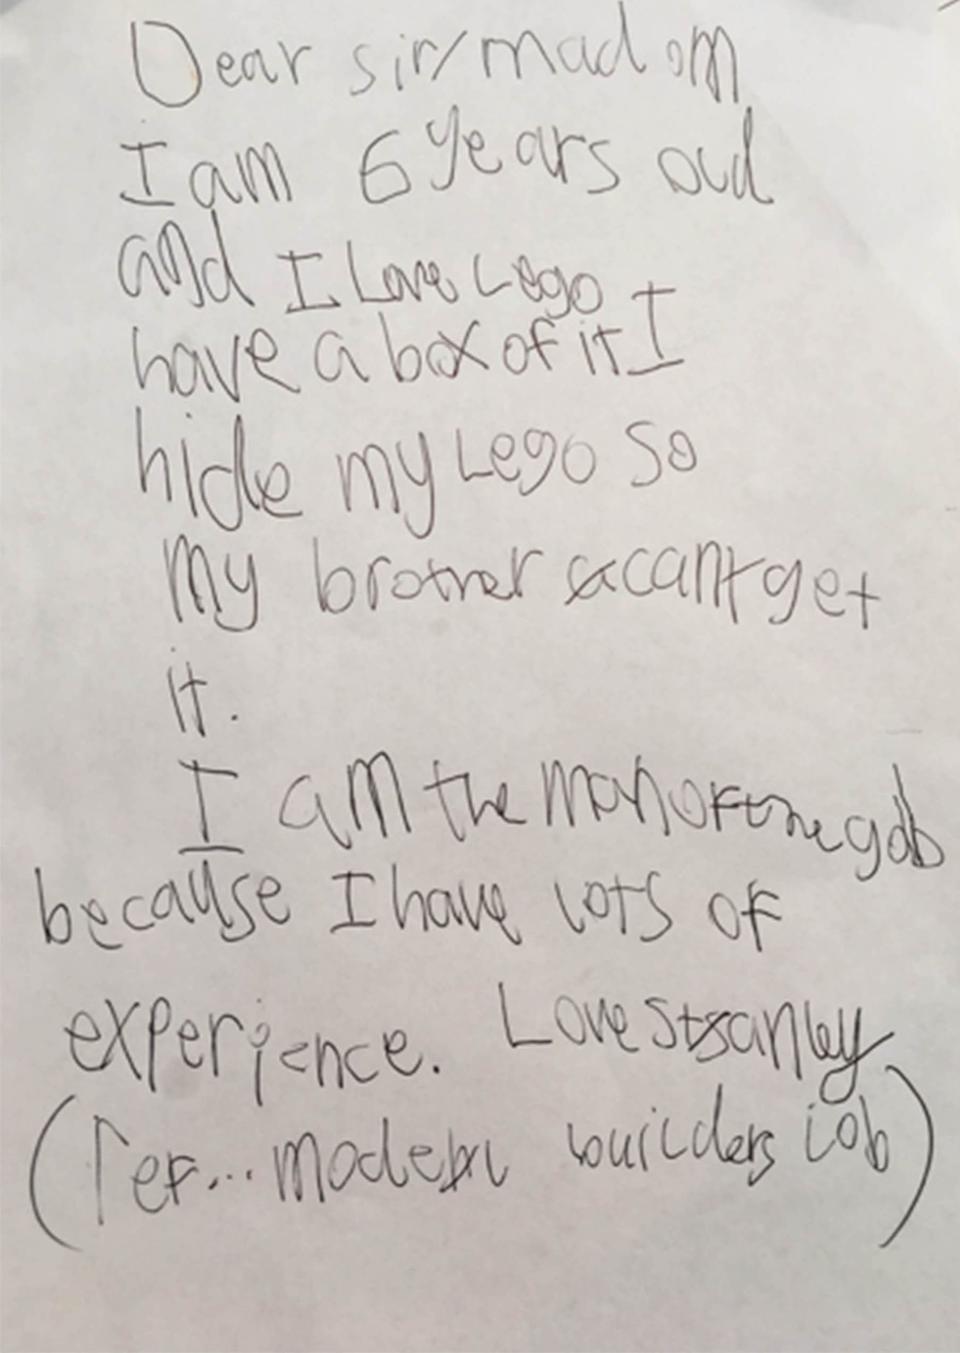 Dear sir/madam
I am 6 years oud
and I Love Lego I
have a box of it I
hide my Lego so
my brother cant get
it.
I am the man or the gob
because I have lots of
experience. Love Stanley
(ref... model builders job)